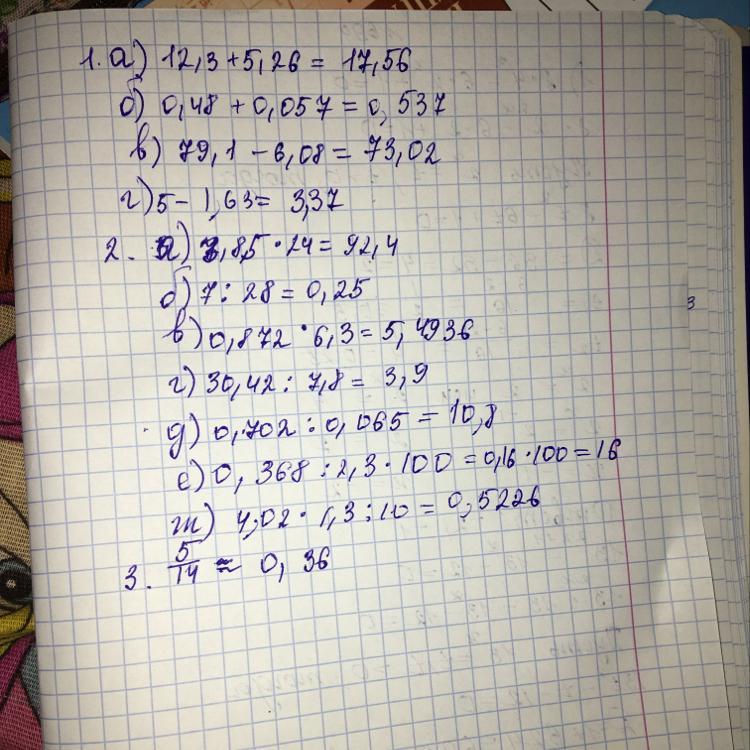 1. а) 12,3 + 5,26 = 17,56
б) 0,48 + 0,057 = 0,537
в) 79,1 - 6,08 = 73,02
г) 5 - 1,63 = 3,37
2. а) 3,85 · 24 = 92,4
б) 7 : 28 = 0,25
в) 0,872 · 6,3 = 5,4936
г) 30,42 : 7,8 = 3,9
д) 0,702 : 0,065 = 10,8
е) 0,368 : 2,3 · 100 = 0,16 · 100 = 16
ж) 4,02 · 1,3 : 10 = 0,5226
3. 5/14 ≈ 0,36
3